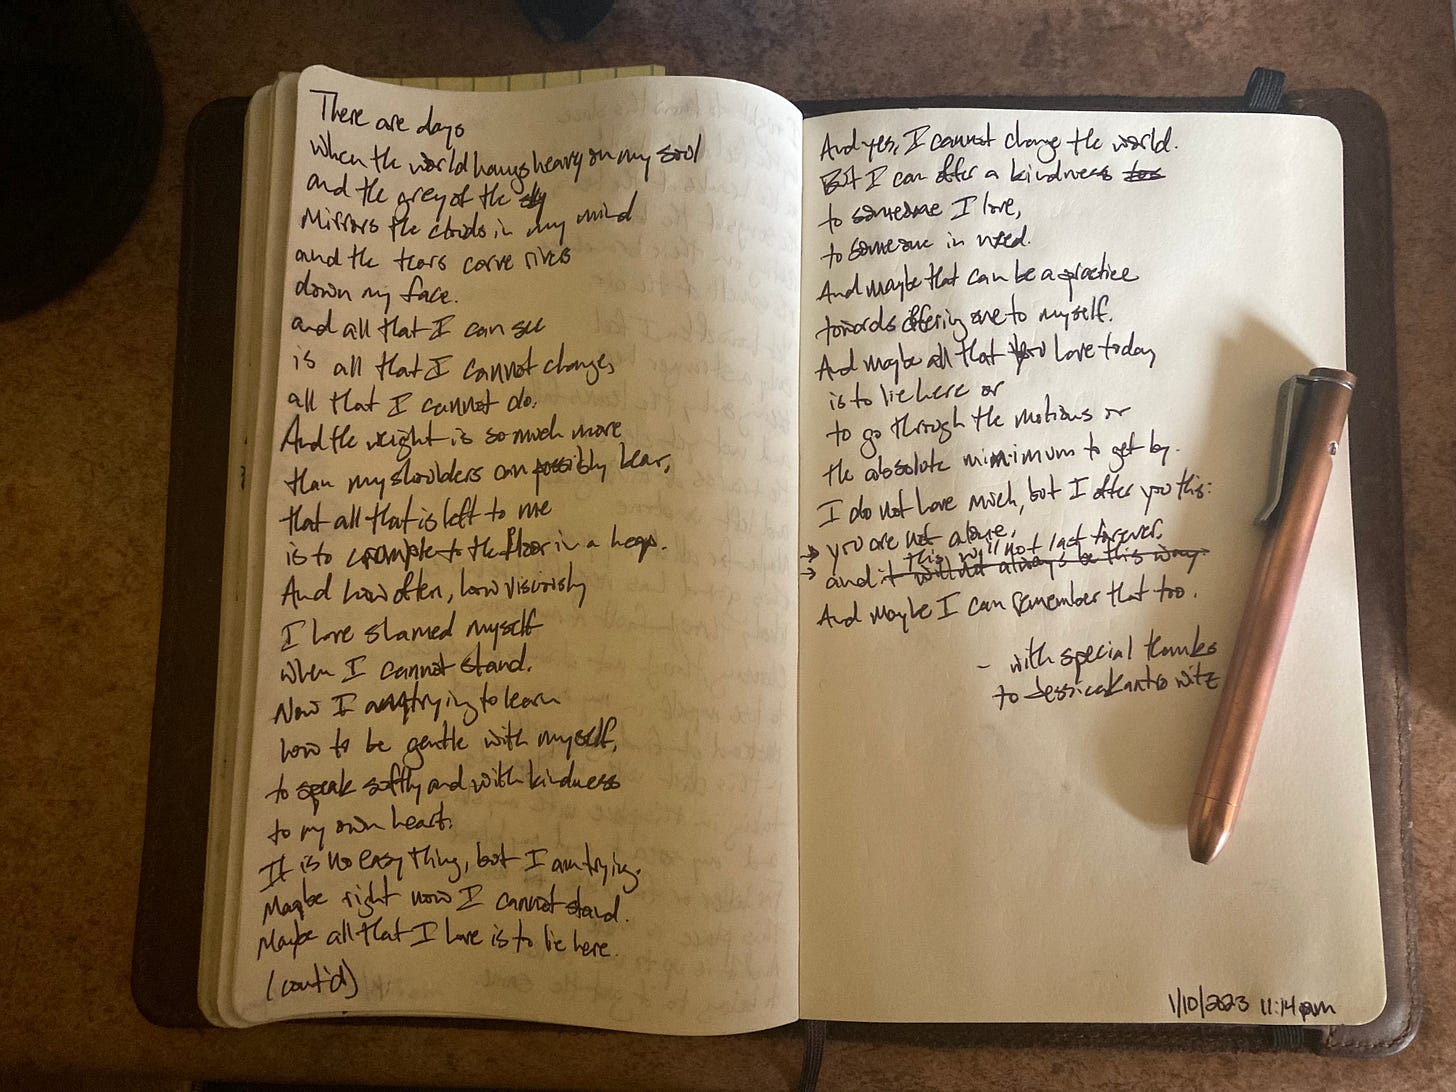 There are days
when the world hangs heavy on my soul
and the grey of the sky
mirrors the clouds in my mind
and the tears carve rivers
down my face.
and all that I can see
is all that I cannot change,
all that I cannot do.
And the weight is so much more
than my shoulders can possibly bear,
that all that is left to me
is to crumple to the floor in a heap.
And how often, how viciously
I have shamed myself
when I cannot stand.
Now I am trying to learn
how to be gentle with myself,
to speak softly and with kindness
to my own heart.
It is no easy thing, but I am trying.
Maybe right now I cannot stand.
Maybe all that I have is to lie here.
(cont'd)
And yes, I cannot change the world.
But I can offer a kindness
to someone I love,
to someone in need.
And maybe that can be a practice
towards offering one to myself.
And maybe all that you have today
is to lie here or
to go through the motions or
the absolute minimum to get by.
I do not have much, but I offer you this:
→ you are not alone,
this will not last forever.
→ and it will not always be this way.
And maybe I can remember that too.
- with special thanks
to Jessica Kantrowitz
1/10/2023 11:14 pm